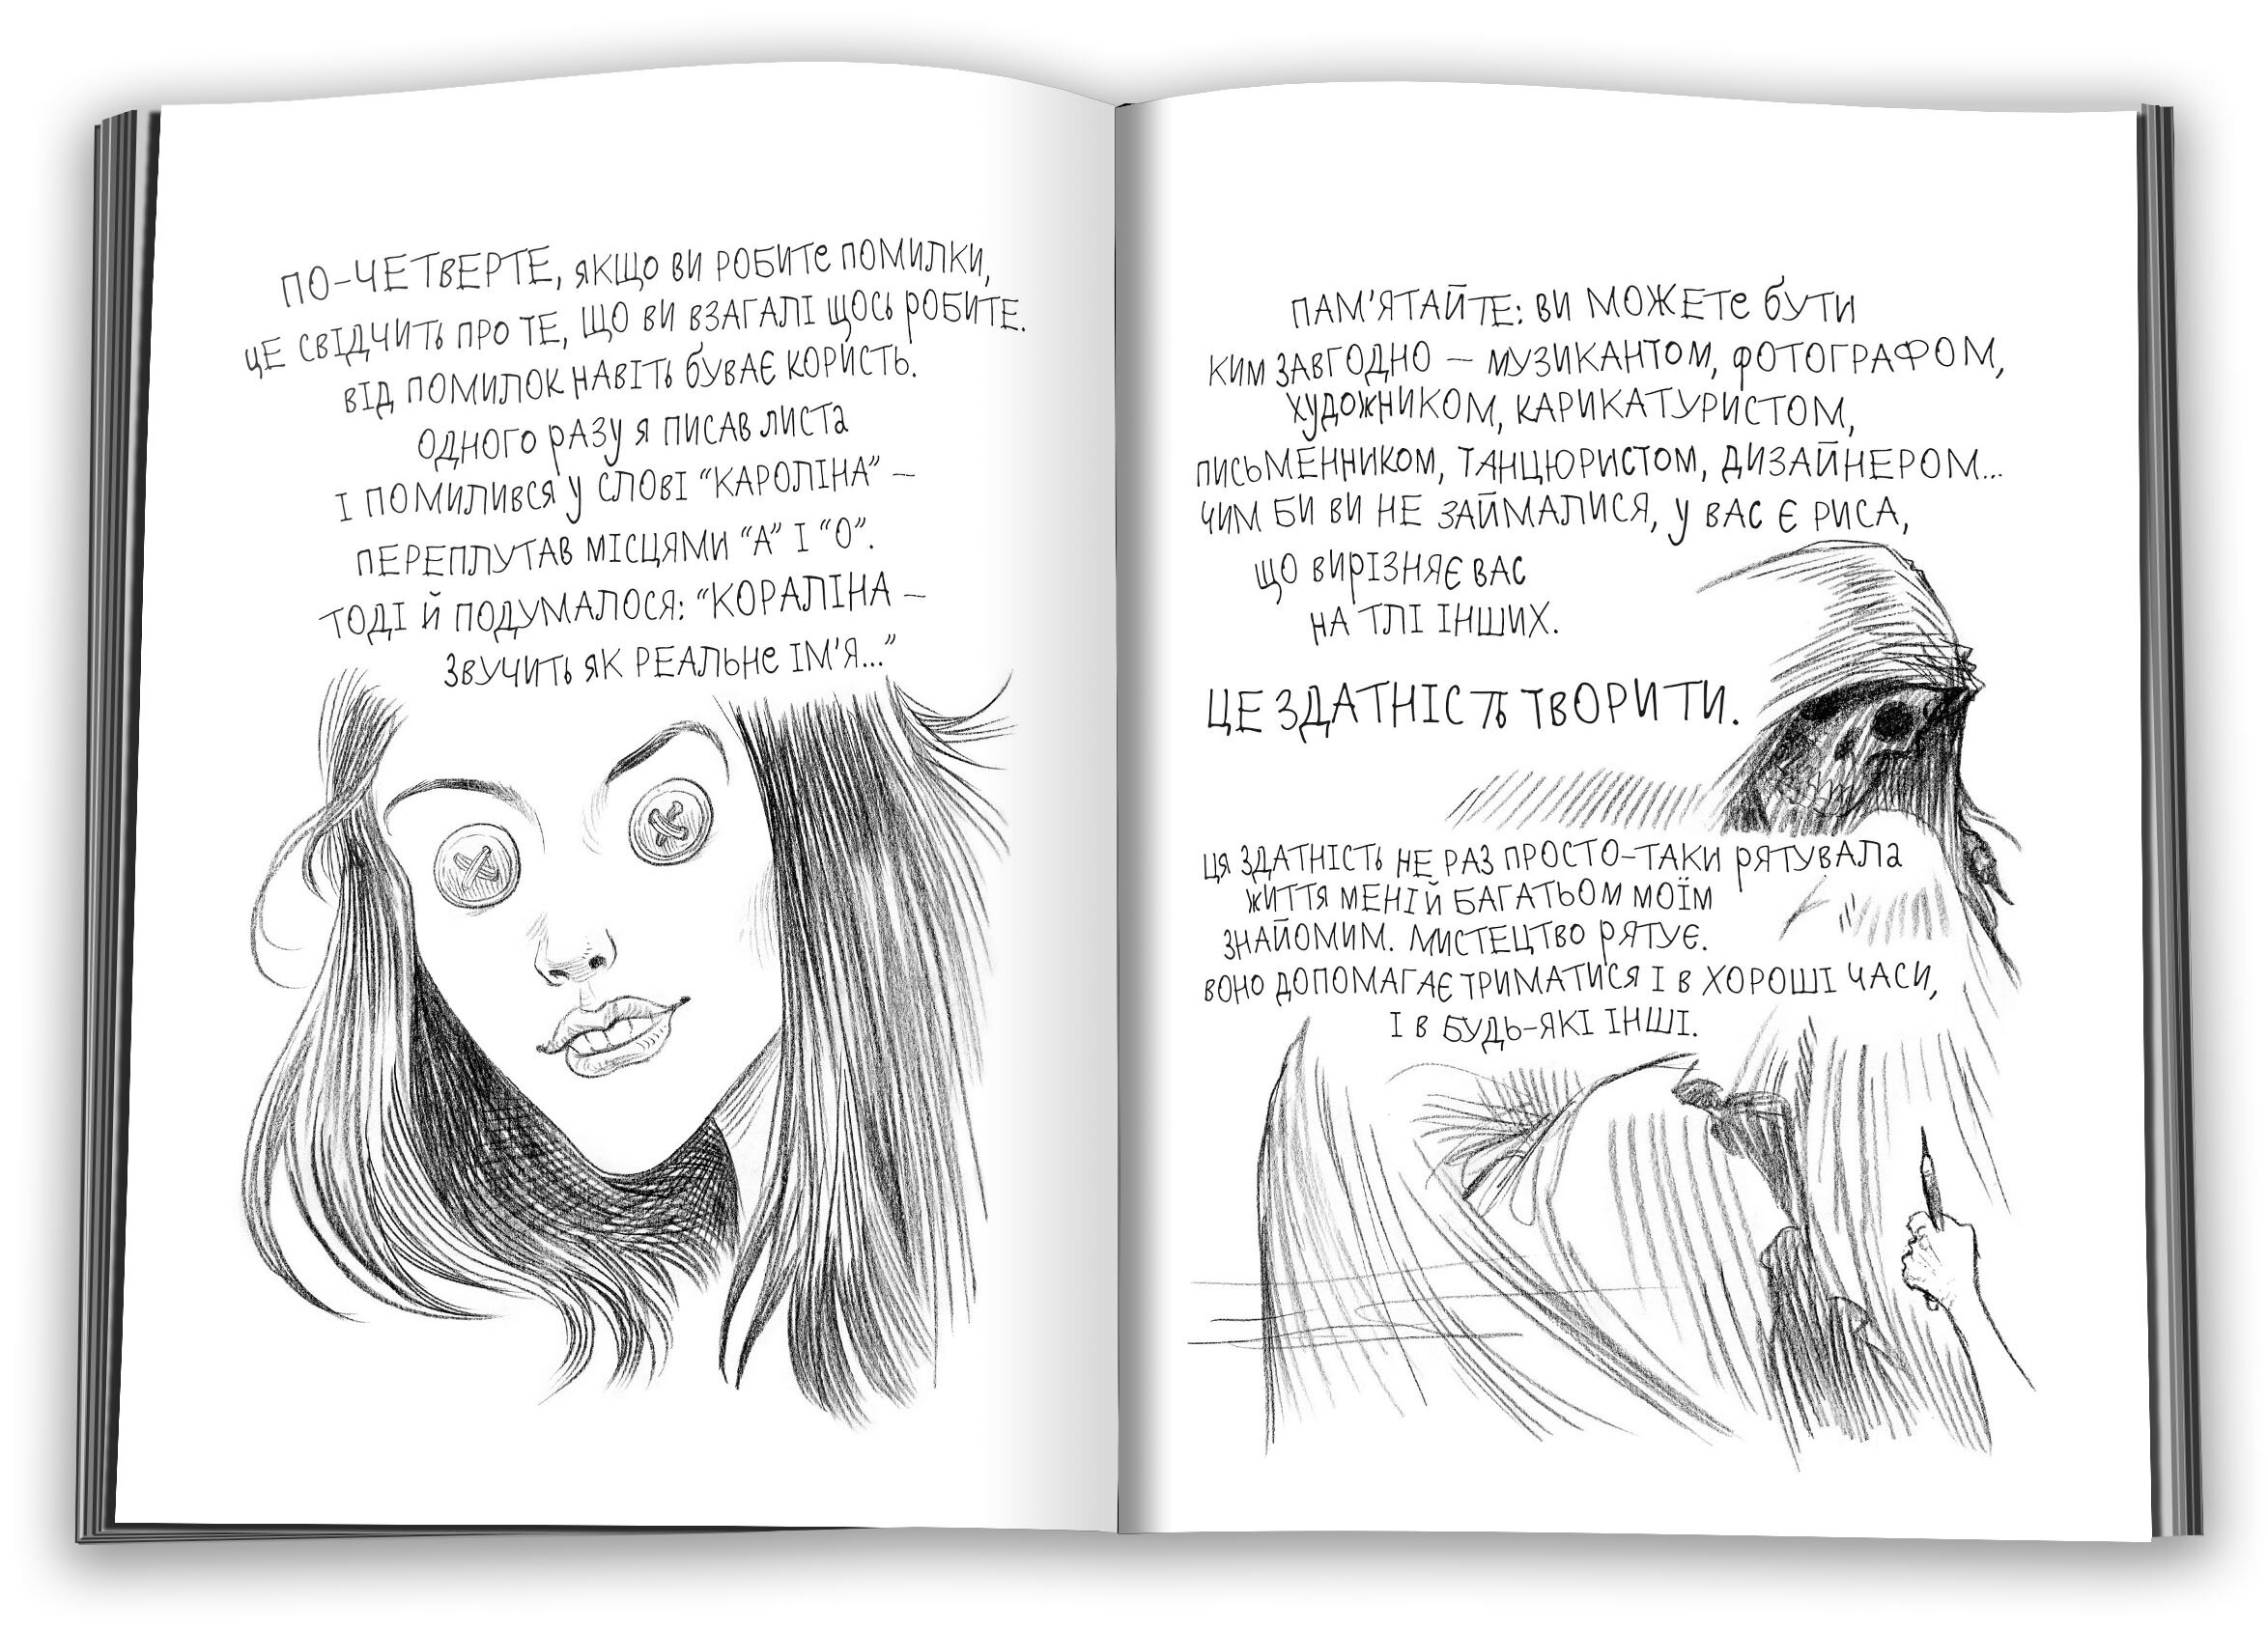 ПО-ЧЕТВЕРТЕ, ЯКЩО ВИ РОБИТЕ ПОМИЛКИ,
ЦЕ СВІДЧИТЬ ПРО ТЕ, ЩО ВИ ВЗАГАЛІ ЩОСЬ РОБИТЕ.
ВІД ПОМИЛОК НАВІТЬ БУВАЄ КОРИСТЬ.
ОДНОГО РАЗУ Я ПИСАВ ЛИСТА
І ПОМИЛИВСЯ У СЛОВІ “КАРОЛІНА” –
ПЕРЕПЛУТАВ МІСЦЯМИ “А” І “О”.
ТОДІ Й ПОДУМАЛОСЯ: “КОРАЛІНА –
ЗВУЧИТЬ ЯК РЕАЛЬНЕ ІМ’Я...”
ПАМ’ЯТАЙТЕ: ВИ МОЖЕТЕ БУТИ
КИМ ЗАВГОДНО – МУЗИКАНТОМ, ФОТОГРАФОМ,
ХУДОЖНИКОМ, КАРИКАТУРИСТОМ,
ПИСЬМЕННИКОМ, ТАНЦЮРИСТОМ, ДИЗАЙНЕРОМ...
ЧИМ БИ ВИ НЕ ЗАЙМАЛИСЯ, У ВАС Є РИСА,
ЩО ВИРІЗНЯЄ ВАС
НА ТЛІ ІНШИХ.
ЦЕ ЗДАТНІСТЬ ТВОРИТИ.
ЦЯ ЗДАТНІСТЬ НЕ РАЗ ПРОСТО-ТАКИ РЯТУВАЛА
ЖИТТЯ МЕНІ Й БАГАТЬОМ МОЇМ
ЗНАЙОМИМ. МИСТЕЦТВО РЯТУЄ.
ВОНО ДОПОМАГАЄ ТРИМАТИСЯ І В ХОРОШІ ЧАСИ,
І В БУДЬ-ЯКІ ІНШІ.